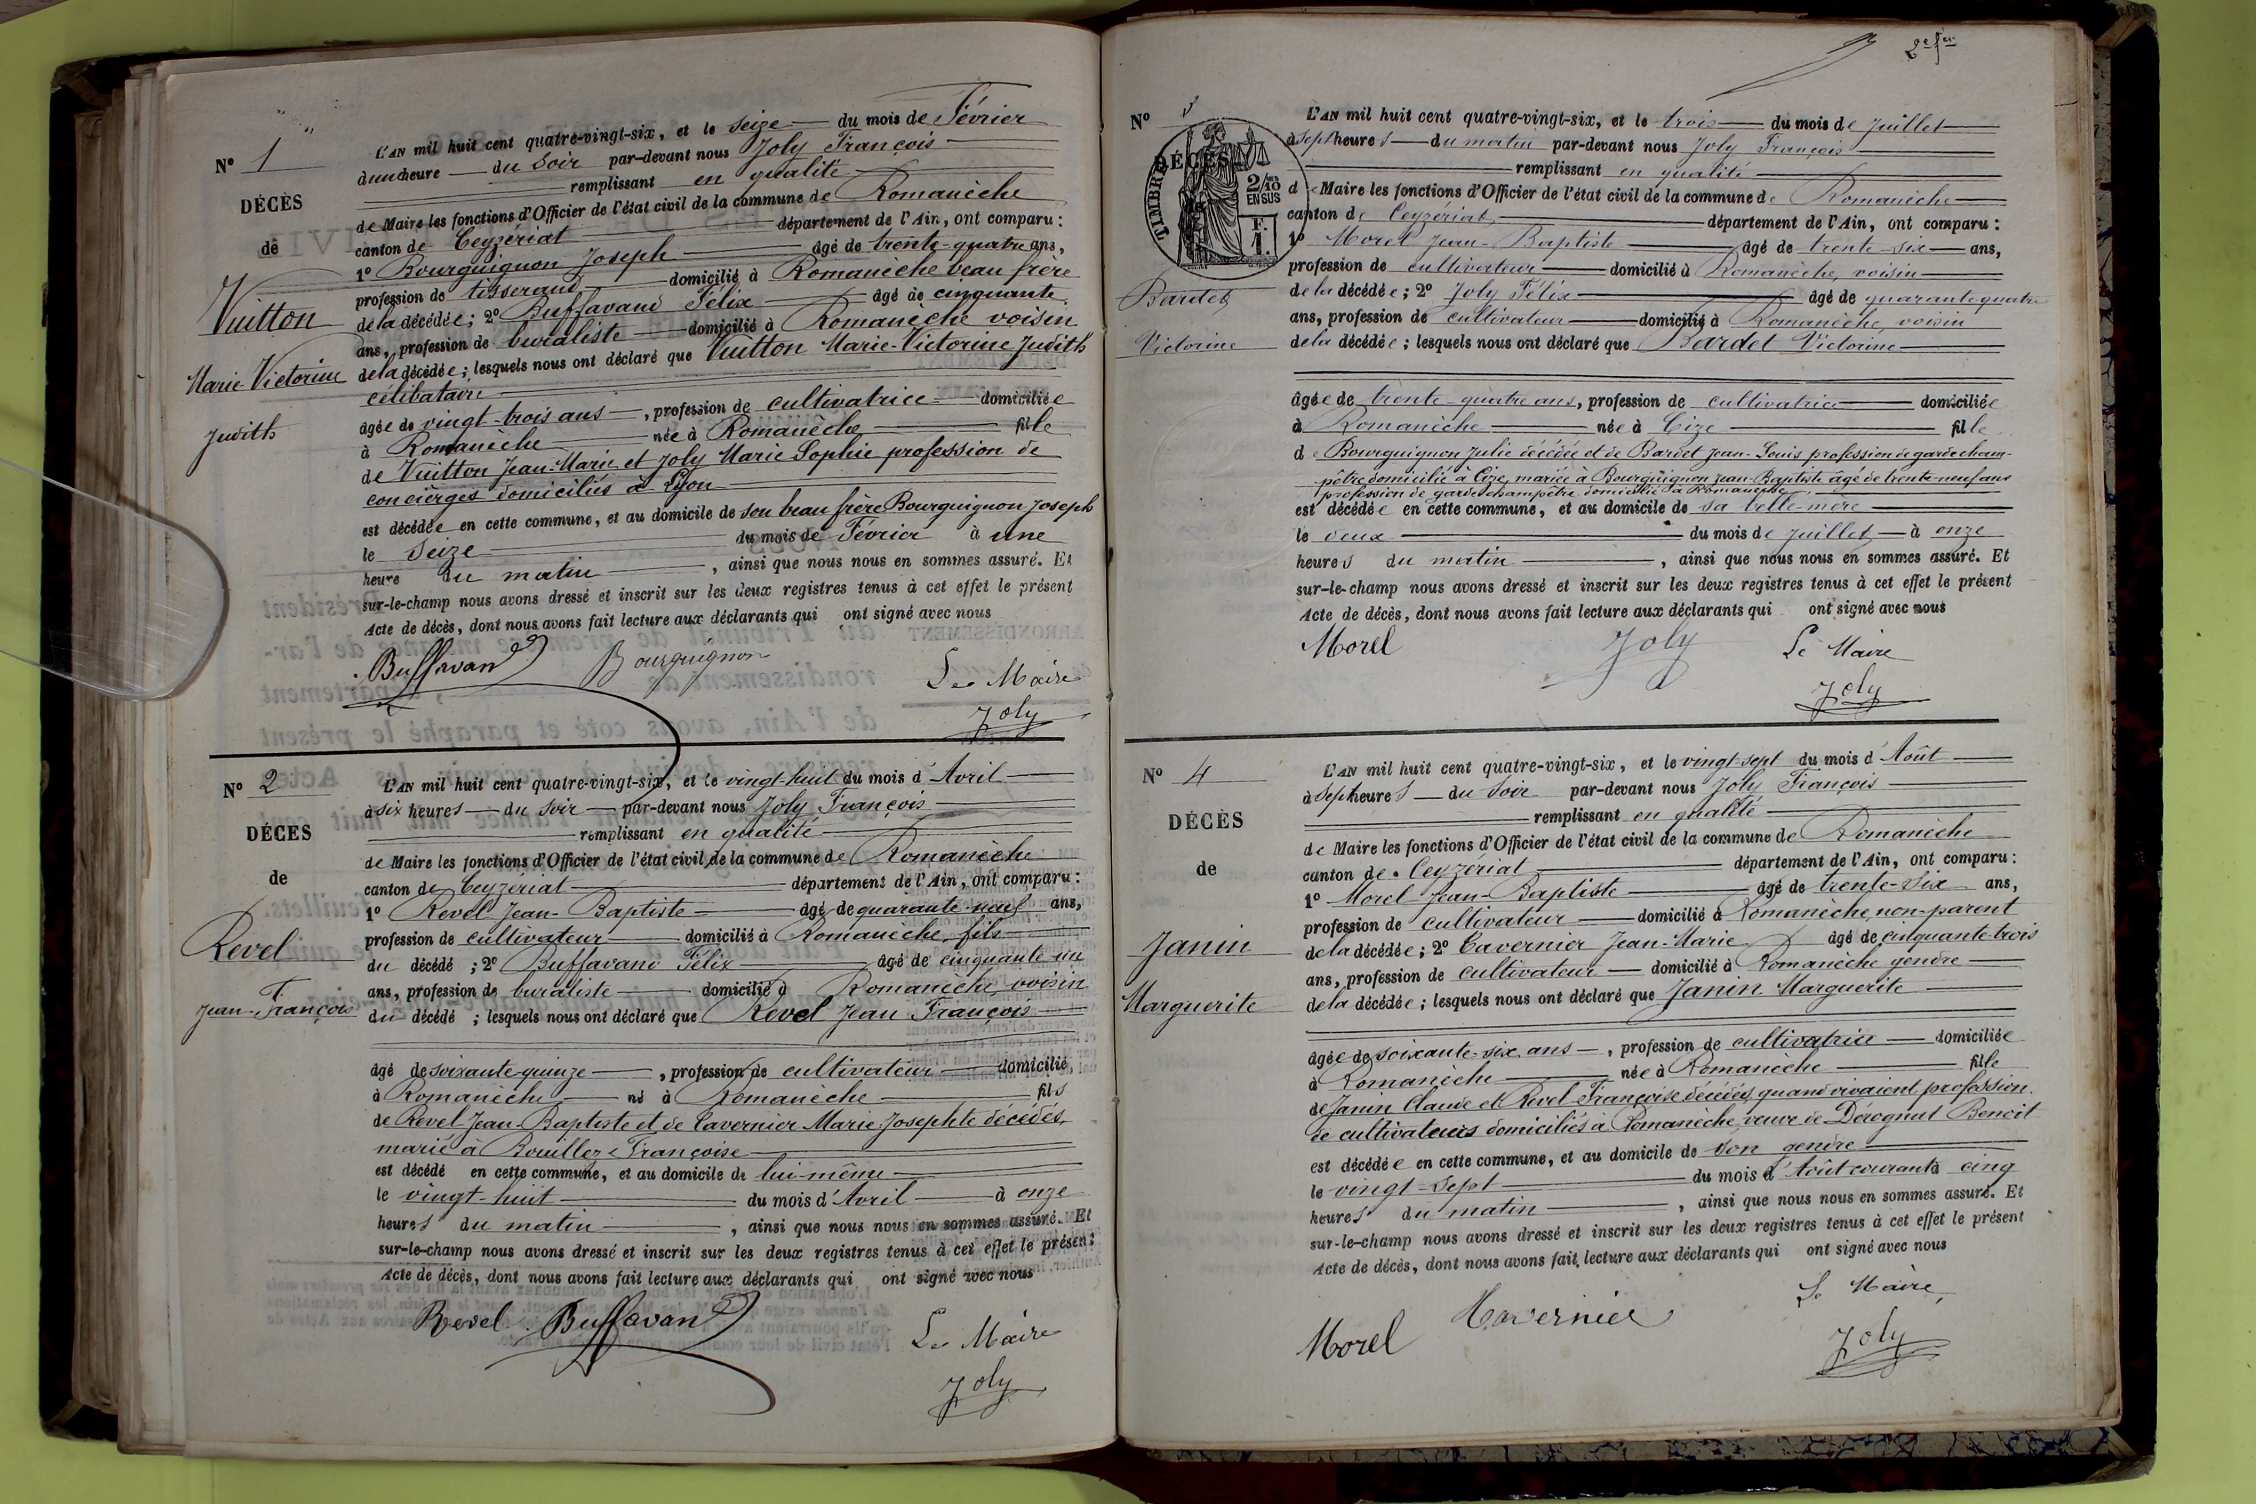 N° 1
DÉCÈS
de
Vuitton
Marie-Victorine
Judith
L'AN mil huit cent quatre-vingt-six, et le seize du mois de Février
d'une heure du soir par-devant nous Joly François
remplissant en qualité
de Maire les fonctions d'Officier de l'état civil de la commune de Romanèche
canton de Ceyzériat département de l'Ain, ont comparu :
1° Bourguignon Joseph âgé de trente-quatre ans,
profession de tisserand domicilié à Romanèche beau frère
de la décédée ; 2° Buffavand Félix âgé de cinquante
ans, profession de buraliste domicilié à Romanèche voisin
de la décédée ; lesquels nous ont déclaré que Vuitton Marie-Victorine Judith
célibataire
âgée de vingt-trois ans, profession de cultivatrice domiciliée
à Romanèche née à Romanèche fille
de Vuitton Jean-Marie et Joly Marie Sophie profession de
concierges domiciliés à Lyon
est décédée en cette commune, et au domicile de son beau frère Bourguignon Joseph
le seize du mois de Février à une
heure du matin, ainsi que nous nous en sommes assuré. Et
sur-le-champ nous avons dressé et inscrit sur les deux registres tenus à cet effet le présent
Acte de décès, dont nous avons fait lecture aux déclarants qui ont signé avec nous
Buffavand Bourguignon Le Maire
Joly
N° 2
DÉCES
de
Revel
Jean-François
L'AN mil huit cent quatre-vingt-six, et le vingt-huit du mois d'Avril
à six heures du soir par-devant nous Joly François
remplissant en qualité
de Maire les fonctions d'Officier de l'état civil de la commune de Romanèche
canton de Ceyzériat département de l'Ain, ont comparu :
1° Revel Jean-Baptiste âgé de quarante-neuf ans,
profession de cultivateur domicilié à Romanèche, fils
du décédé ; 2° Buffavand Félix âgé de cinquante un
ans, profession de buraliste domicilié à Romanèche, voisin
du décédé ; lesquels nous ont déclaré que Revel Jean François
âgé de soixante-quinze, profession de cultivateur domicilié,
à Romanèche né à Romanèche fils
de Revel Jean-Baptiste et de Tavernier Marie Josephte décédés,
marié à Bouillez Françoise
est décédé en cette commune, et au domicile de lui-même
le vingt-huit du mois d'Avril à onze
heures du matin, ainsi que nous nous en sommes assuré. Et
sur-le-champ nous avons dressé et inscrit sur les deux registres tenus à cet effet le présent
Acte de décès, dont nous avons fait lecture aux déclarants qui ont signé avec nous
Revel Buffavand Le Maire
Joly
2e f
N° 3
TIMBRE
DÉCÈS
2/10 EN SUS
F. 1.
Bardet
Victorine
L'AN mil huit cent quatre-vingt-six, et le trois du mois de Juillet
à sept heures du matin par-devant nous Joly François
remplissant en qualité
de Maire les fonctions d'Officier de l'état civil de la commune de Romanèche
canton de Ceyzériat, département de l'Ain, ont comparu :
1° Morel Jean-Baptiste âgé de trente-six ans,
profession de cultivateur domicilié à Romanèche, voisin
de la décédée ; 2° Joly Félix âgé de quarante quatre
ans, profession de cultivateur domicilié à Romanèche, voisin
de la décédée ; lesquels nous ont déclaré que Bardet Victorine
âgée de trente-quatre ans, profession de cultivatrice domiciliée
à Romanèche née à Cize fille
de Bourguignon Julie décédée et de Bardet Jean-Louis profession de garde cham-
pêtre domicilié à Cize, mariée à Bourguignon Jean-Baptiste âgé de trente-neuf ans
profession de garde champêtre domicilié à Romanèche
est décédée en cette commune, et au domicile de sa belle-mère
le deux du mois de Juillet à onze
heures du matin, ainsi que nous nous en sommes assuré. Et
sur-le-champ nous avons dressé et inscrit sur les deux registres tenus à cet effet le présent
Acte de décès, dont nous avons fait lecture aux déclarants qui ont signé avec nous
Morel Joly Le Maire
Joly
N° 4
DÉCÈS
de
Janin
Marguerite
L'AN mil huit cent quatre-vingt-six, et le vingt-sept du mois d'Août
à sept heures du soir par-devant nous Joly François
remplissant en qualité
de Maire les fonctions d'Officier de l'état civil de la commune de Romanèche
canton de Ceyzériat département de l'Ain, ont comparu :
1° Morel Jean-Baptiste âgé de trente-six ans,
profession de cultivateur domicilié à Romanèche, non-parent
de la décédée ; 2° Tavernier Jean-Marie âgé de cinquante-trois
ans, profession de cultivateur domicilié à Romanèche gendre
de la décédée ; lesquels nous ont déclaré que Janin Marguerite
âgée de soixante-six ans, profession de cultivatrice domiciliée
à Romanèche née à Romanèche fille
de Janin Claude et Revel Françoise décédés, quand vivaient profession
de cultivateurs domiciliés à Romanèche, veuve de Dérognat Benoît
est décédée en cette commune, et au domicile de son gendre
le vingt-sept du mois d'Août courant à cinq
heures du matin, ainsi que nous nous en sommes assuré. Et
sur-le-champ nous avons dressé et inscrit sur les deux registres tenus à cet effet le présent
Acte de décès, dont nous avons fait lecture aux déclarants qui ont signé avec nous
Morel Tavernier Le Maire,
Joly